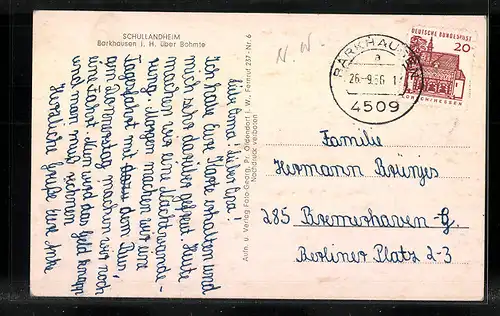 SCHULLANDHEIM
Barkhausen i. H. über Bohmte
Liebe Oma! Lieber Opa!
Ich habe Eure Karte erhalten und
mich sehr darüber gefreut. Heute
machen wir eine Nachtwande-
rung. Morgen machen wir eine
Tagesfahrt mit dem Bus,
am Donnerstag machen wir noch
eine Fahrt. Nun wird das Geld knapp
und man muß rechnen
Herzliche Grüße Eure Anke
Aufn. u. Verlag Foto-Georg, Pr. Oldendorf i. W., Fernruf 237 - Nr. 6
Nachdruck verboten
N. W.
BARKHAUSEN
a
26.-9.66.-1
4509
DEUTSCHE BUNDESPOST
20
LORSCH/HESSEN
Familie
Hermann Brünjes
285 Bremerhaven-G.
Berliner Platz 2-3